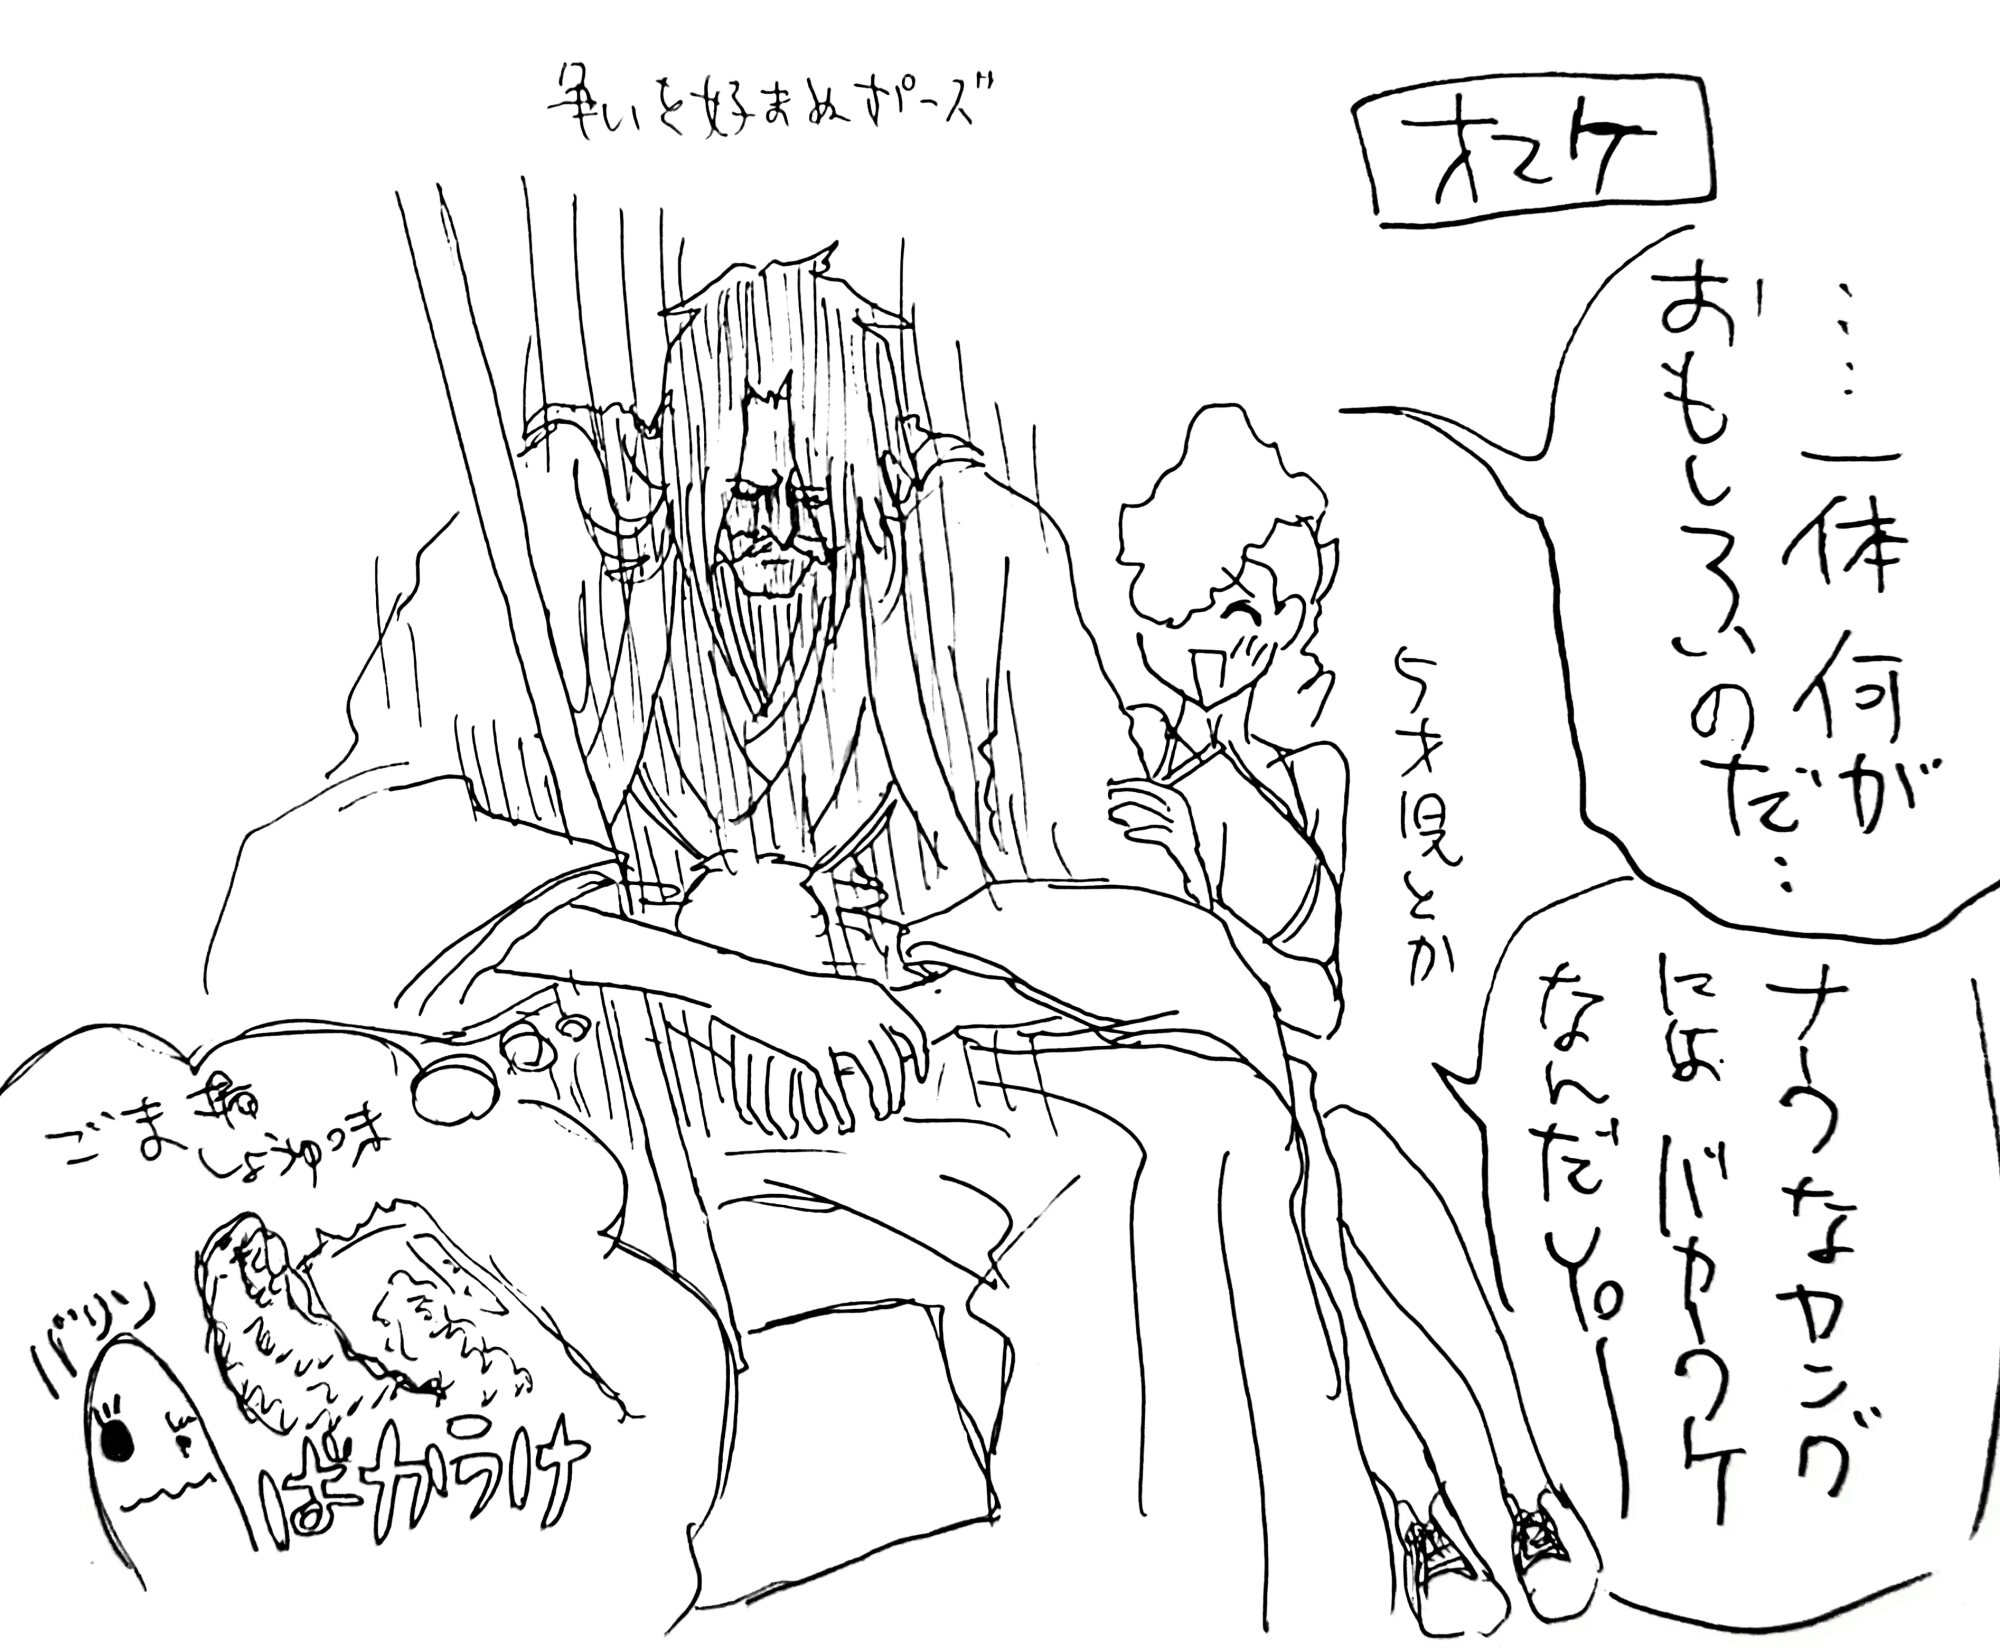 オマケ
争いを好まぬポーズ
……一体何が
おもしろいのだ…
ナーウなヤング
には バカウケ
なんだYo
5才児とか
ごま
しょうゆつき
バリン
ばかうけ